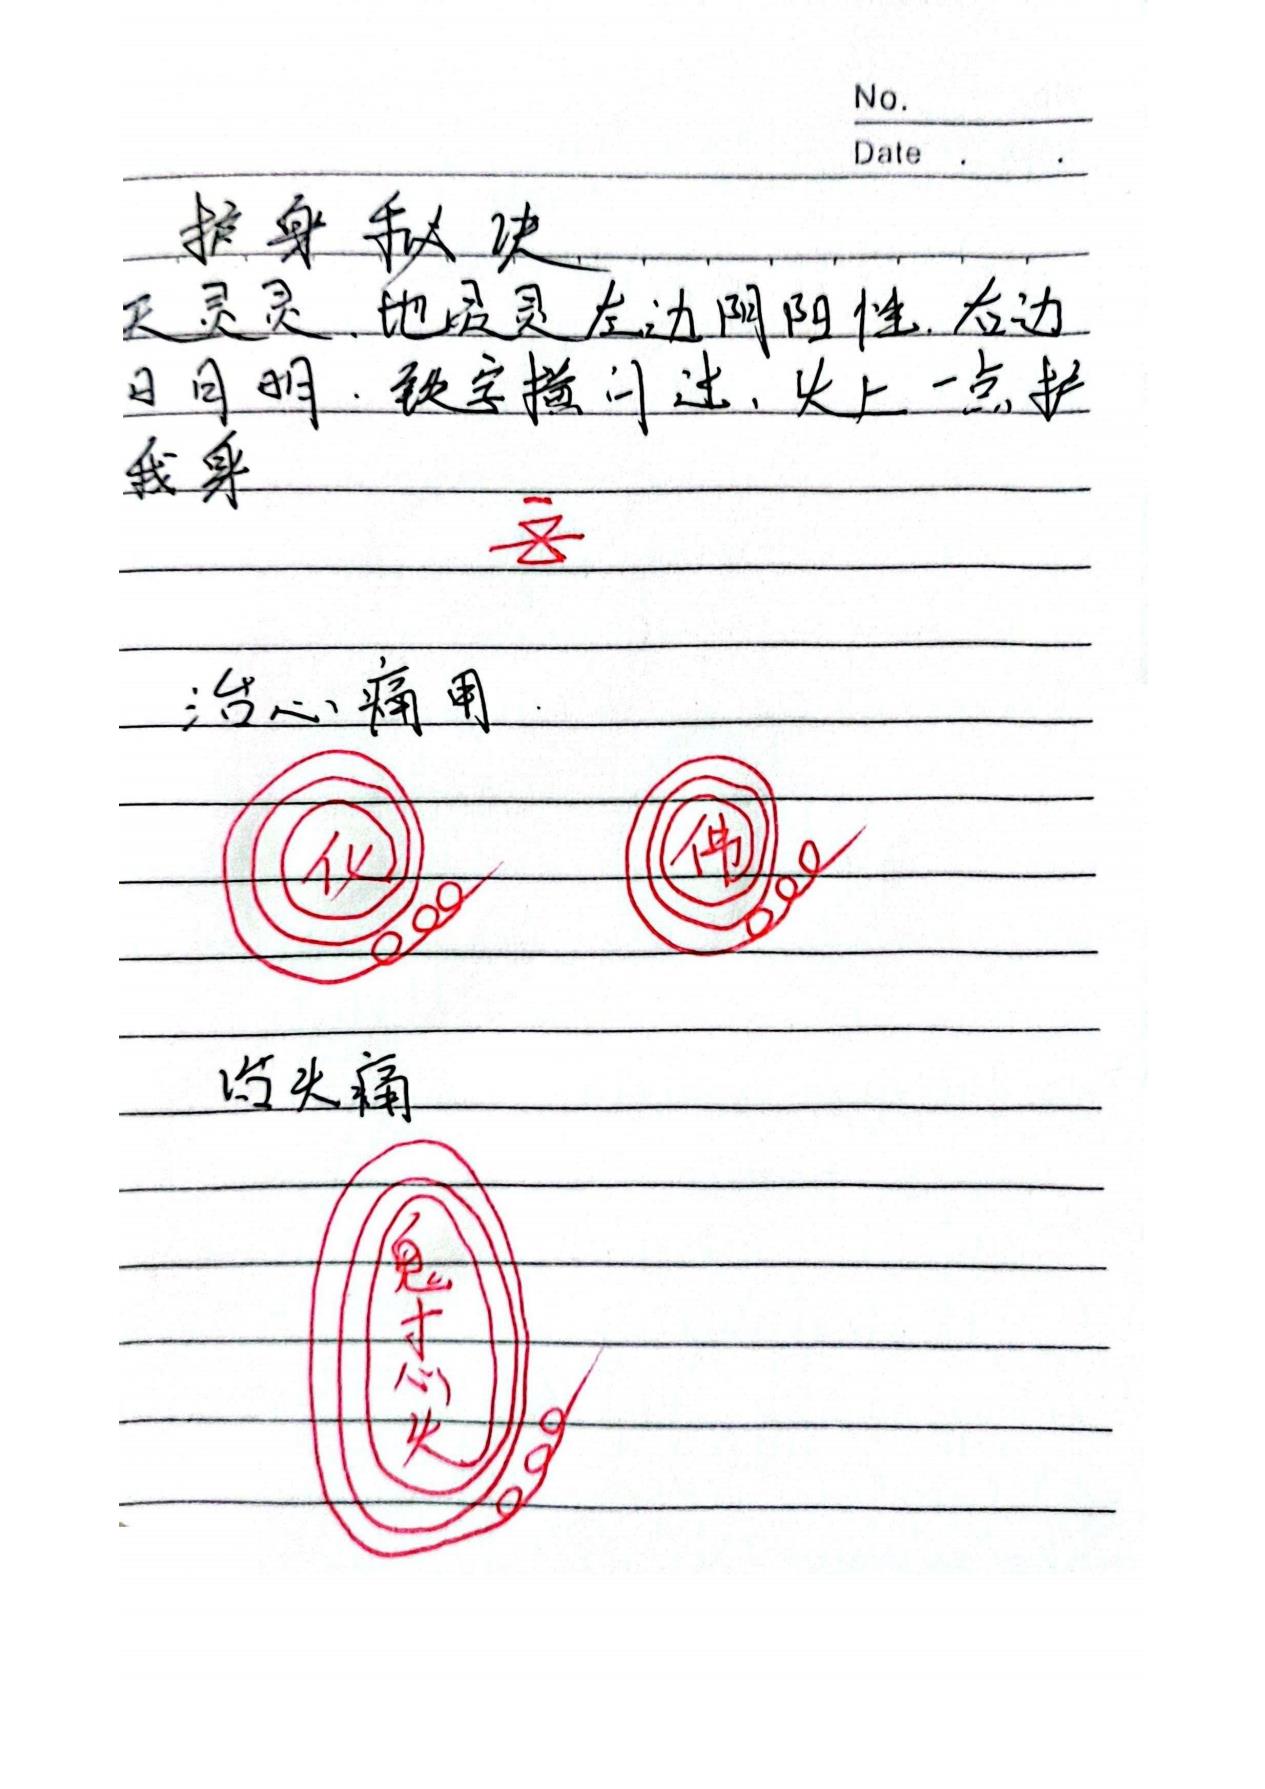 No.
Date . .
护身秘决
天灵灵.地灵灵左边阴阳性.右边
日月明.铁字横门过,火上一点护
我身
治心痛用.
化 佛
治头痛
鬼
寸
火